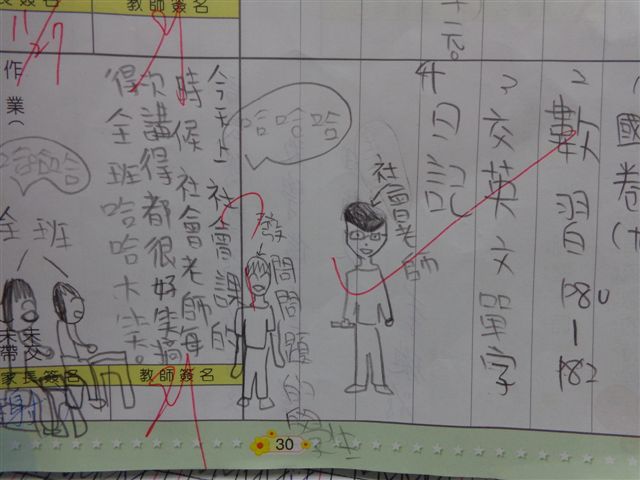 長簽名
教師簽名
11/27
十二元。
1國卷(
2數習P80-P82
3交英文單字
4日記
社會老師
哈哈哈
問問題的學生
今天上社會課的
時候社會老師每
次講得都很好笑,搞
得全班哈哈大笑。
作業(
哈哈哈
全班
未交
未帶
家長簽名
教師簽名
30